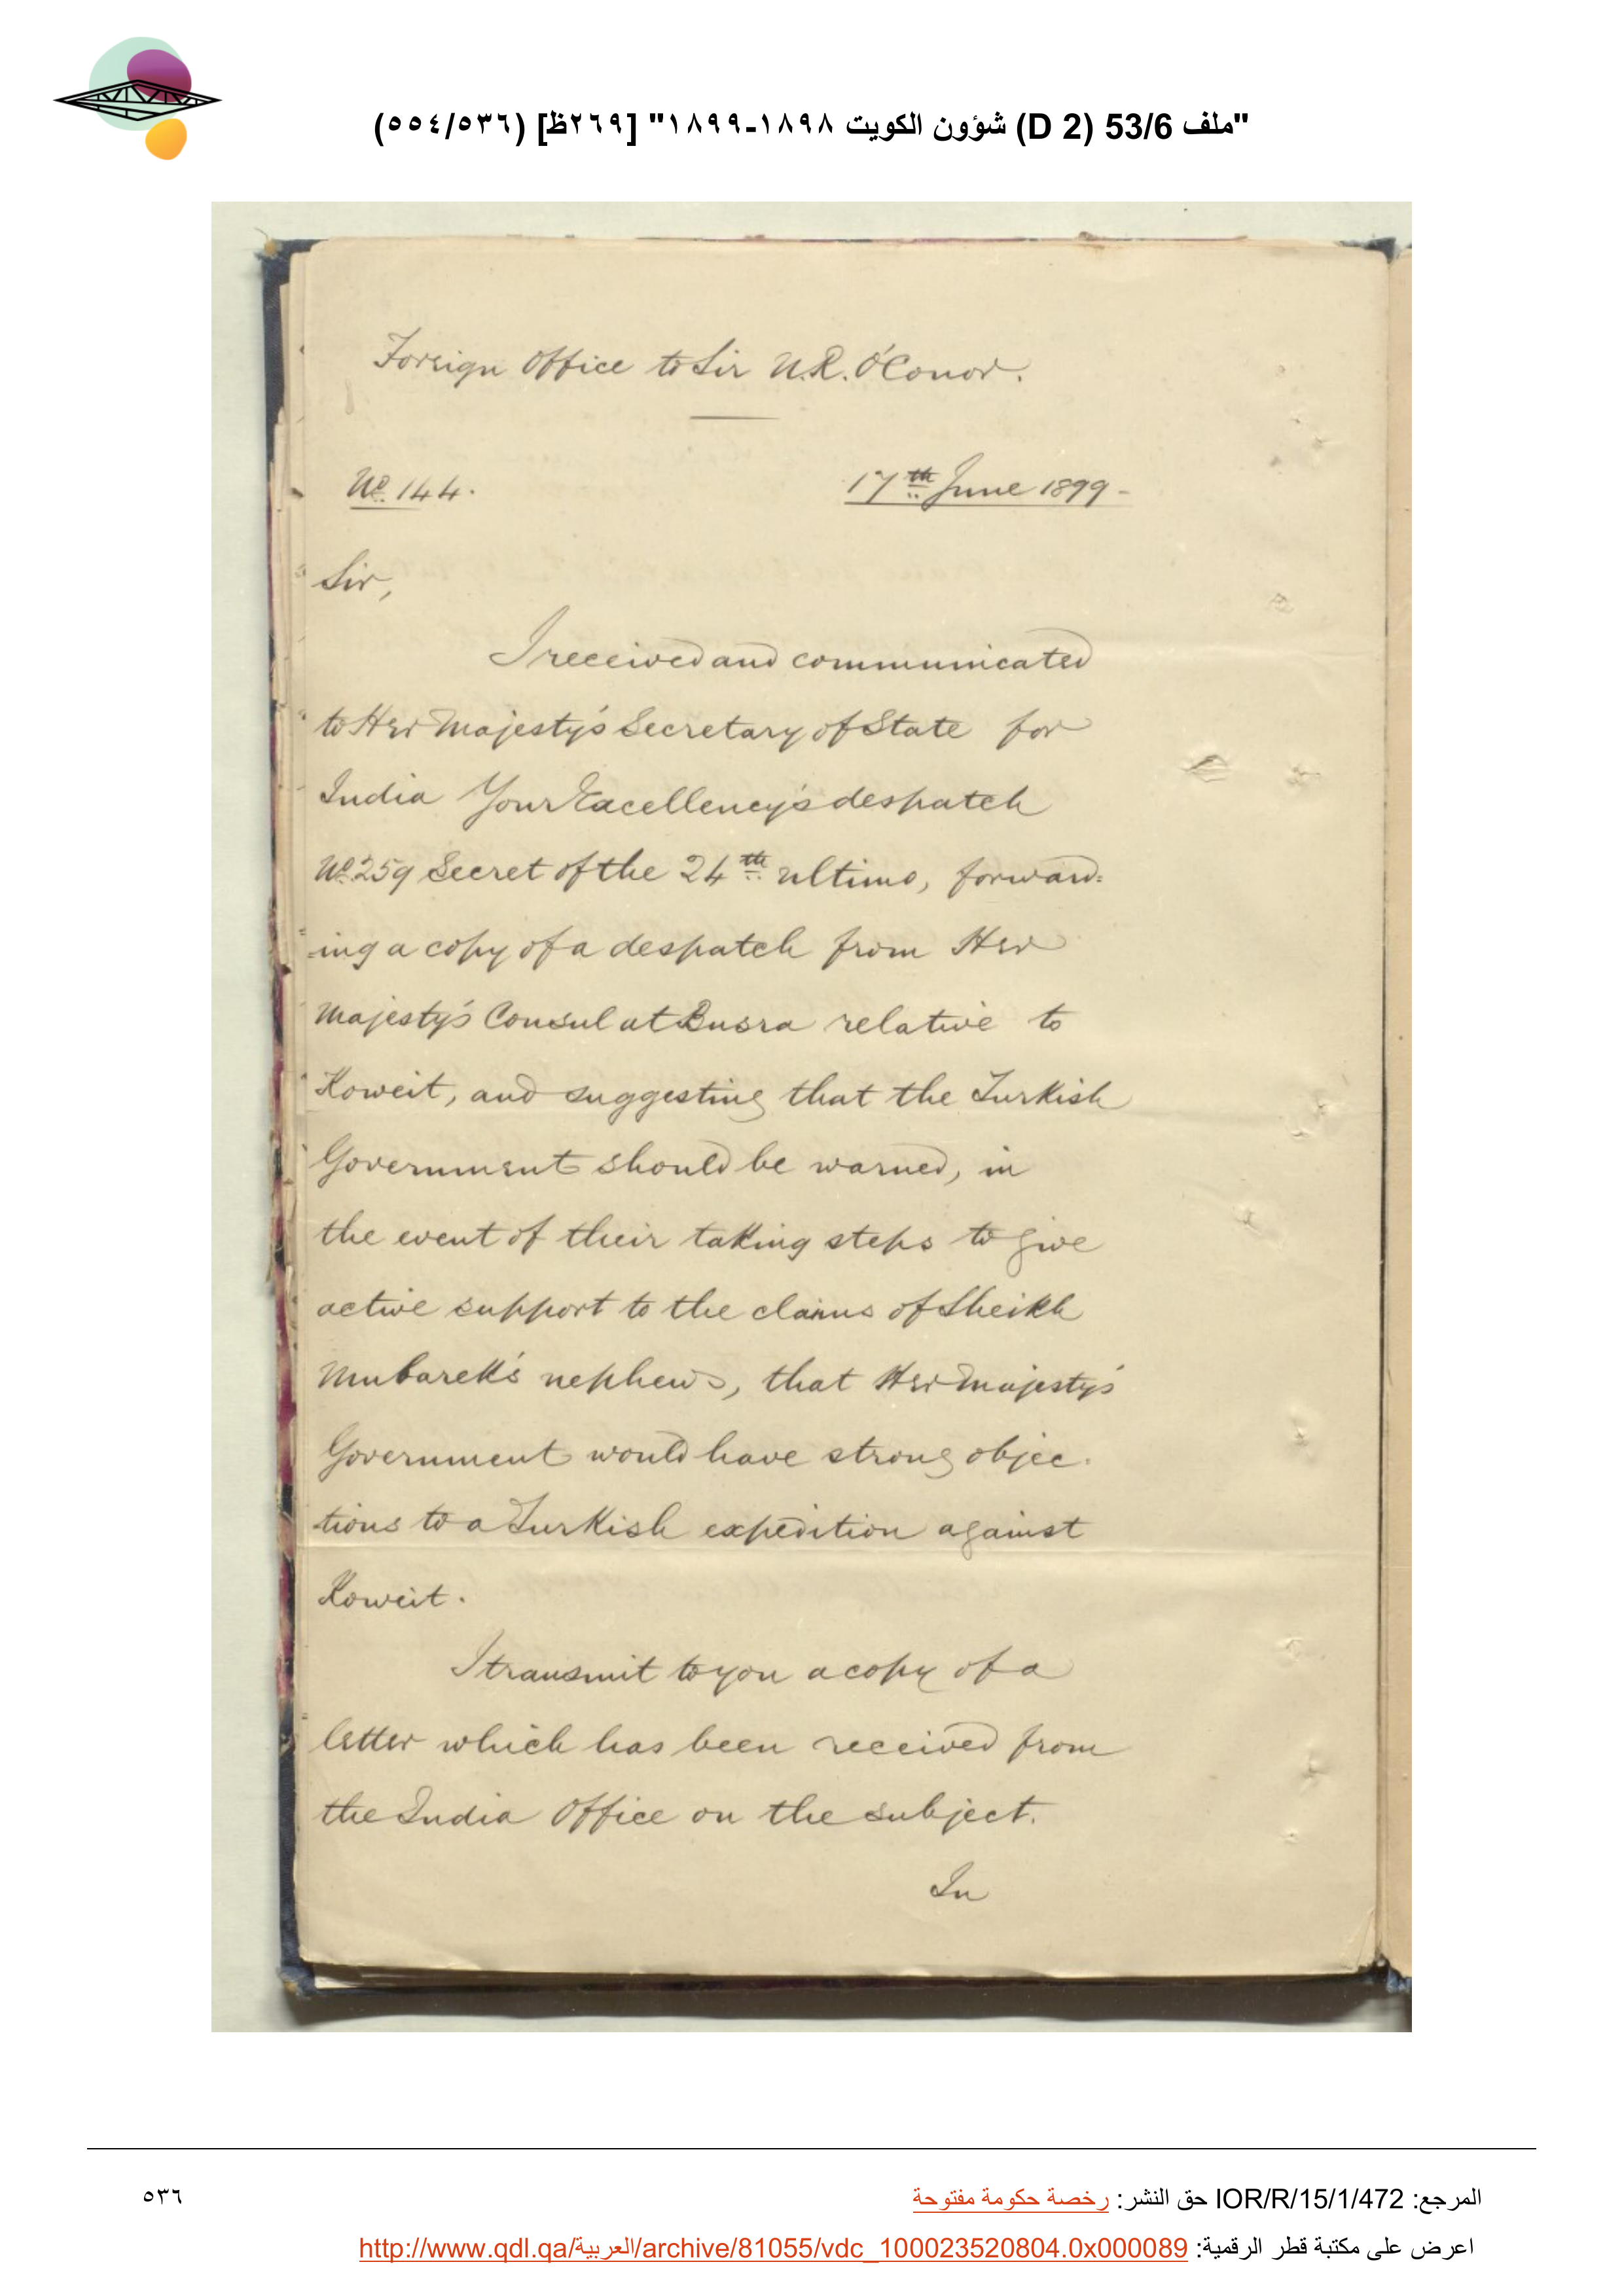 "ملف 53/6 (D 2) شؤون الكويت ١٨٩٨-١٨٩٩" [٢٦٩ظ] (٥٥٤/٥٣٦)
Foreign Office to Sir N.R. O'Conor.
No. 144.
17th June 1899-
Sir,
I received and communicated
to Her Majesty's Secretary of State for
India Your Excellency's despatch
No. 259 Secret of the 24th ultimo, forward=
ing a copy of a despatch from Her
Majesty's Consul at Busra relative to
Koweit, and suggesting that the Turkish
Government should be warned, in
the event of their taking steps to give
active support to the claims of Sheikh
Mubarek's nephews, that Her Majesty's
Government would have strong objec-
tions to a Turkish expedition against
Koweit.
I transmit to you a copy of a
letter which has been received from
the India Office on the subject.
In
المرجع: IOR/R/15/1/472 حق النشر: رخصة حكومة مفتوحة
٥٣٦
اعرض على مكتبة قطر الرقمية: http://www.qdl.qa/العربية/archive/81055/vdc_100023520804.0x000089